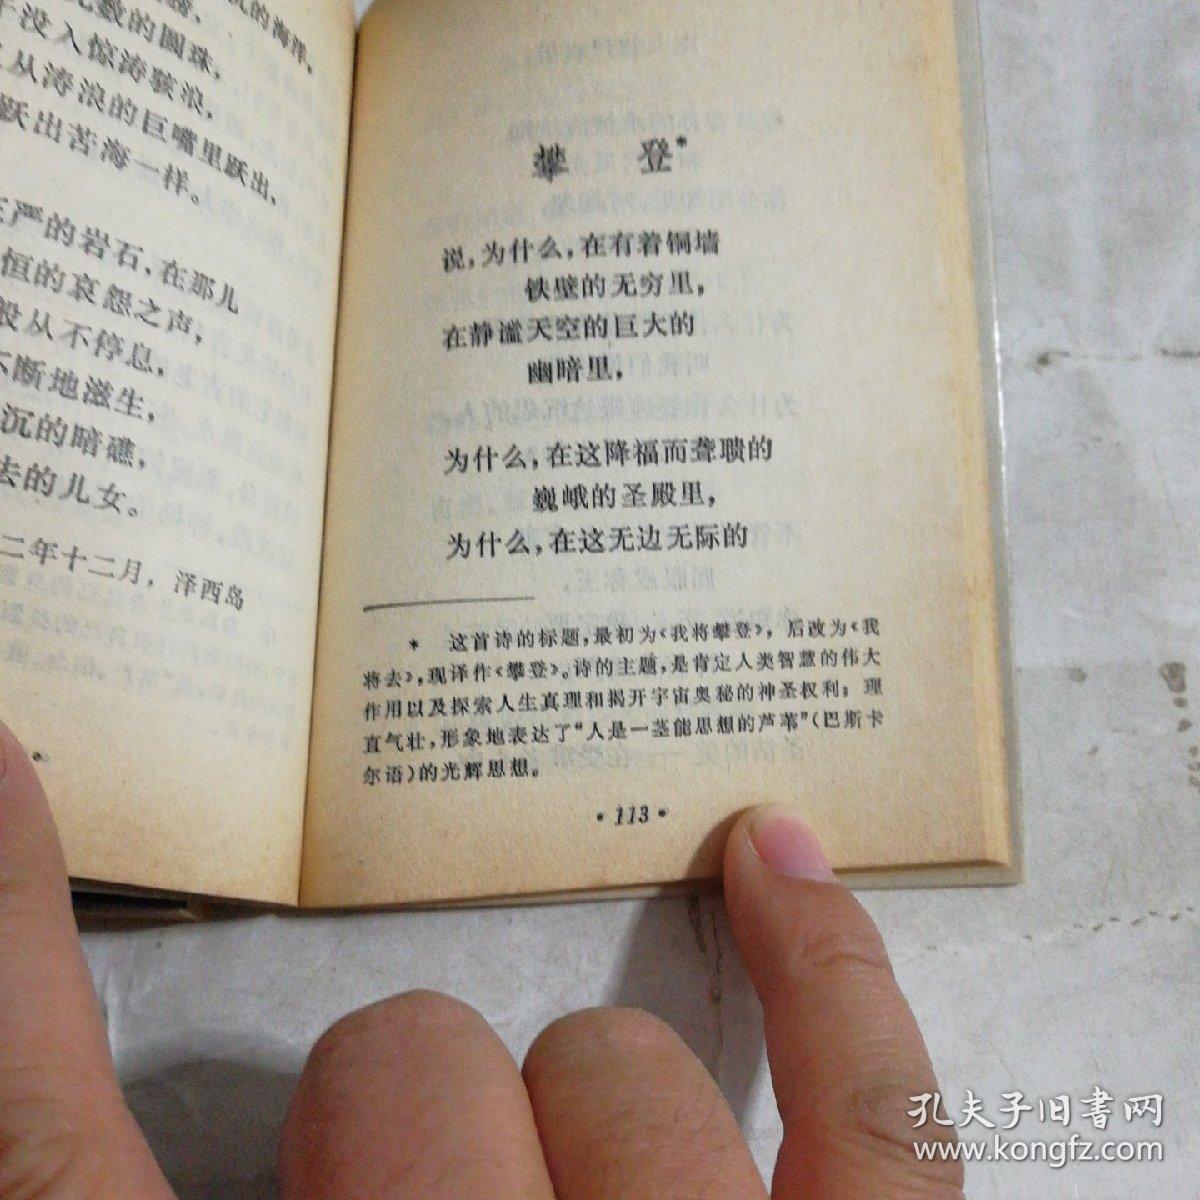 沉的海洋，
无数的圆珠，
于没入惊涛骇浪，
从涛浪的巨嘴里跃出，
跃出苦海一样。
庄严的岩石，在那儿
恒的哀怨之声，
般从不停息，
不断地滋生，
沉的暗礁，
去的儿女。
二年十二月，泽西岛
攀登*
说，为什么，在有着铜墙
铁壁的无穷里，
在静谧天空的巨大的
幽暗里，
为什么，在这降福而聋聩的
巍峨的圣殿里，
为什么，在这无边无际的
* 这首诗的标题，最初为《我将攀登》，后改为《我
将去》，现译作《攀登》。诗的主题，是肯定人类智慧的伟大
作用以及探索人生真理和揭开宇宙奥秘的神圣权利；理
直气壮，形象地表达了“人是一茎能思想的芦苇”（巴斯卡
尔语）的光辉思想。
·113·
孔夫子旧书网
www.kongfz.com